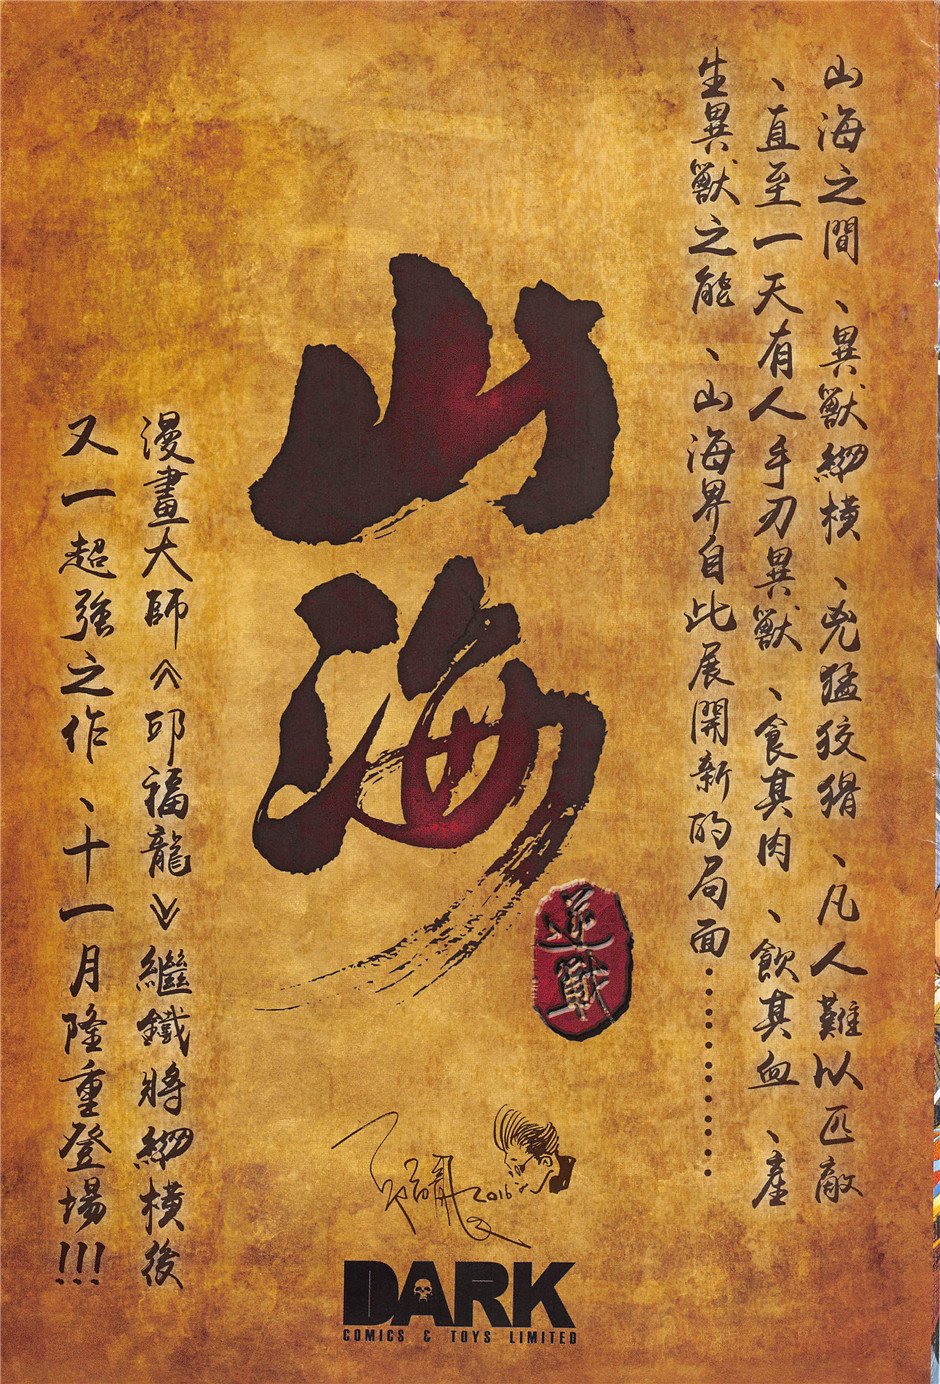 山海之間、異獸縱橫、兇猛狡猾、凡人難以匹敵
、直至一天有人手刃異獸、食其肉、飲其血、產
生異獸之能、山海界自此展開新的局面…………
山海
逆戰
漫畫大師《邱福龍》繼鐵將縱橫後
又一超強之作、十一月隆重登場!!!
邱福龍 2016
DARK
COMICS & TOYS LIMITED